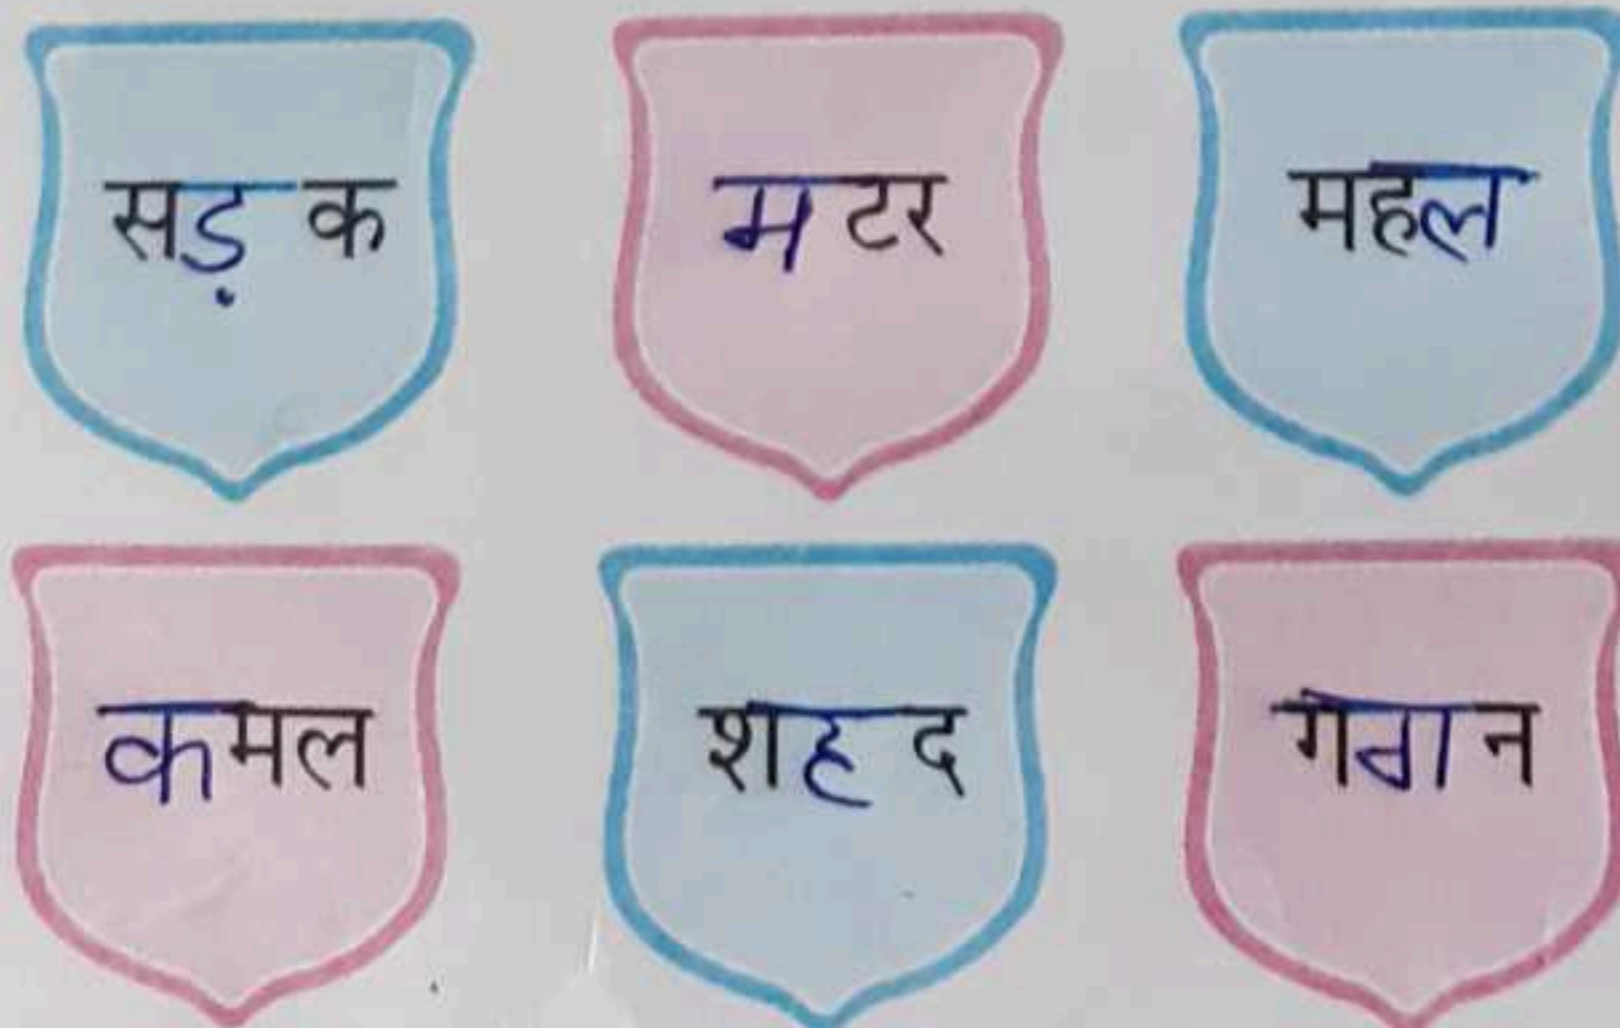 सड़क मटर महल
कमल शहद गगन